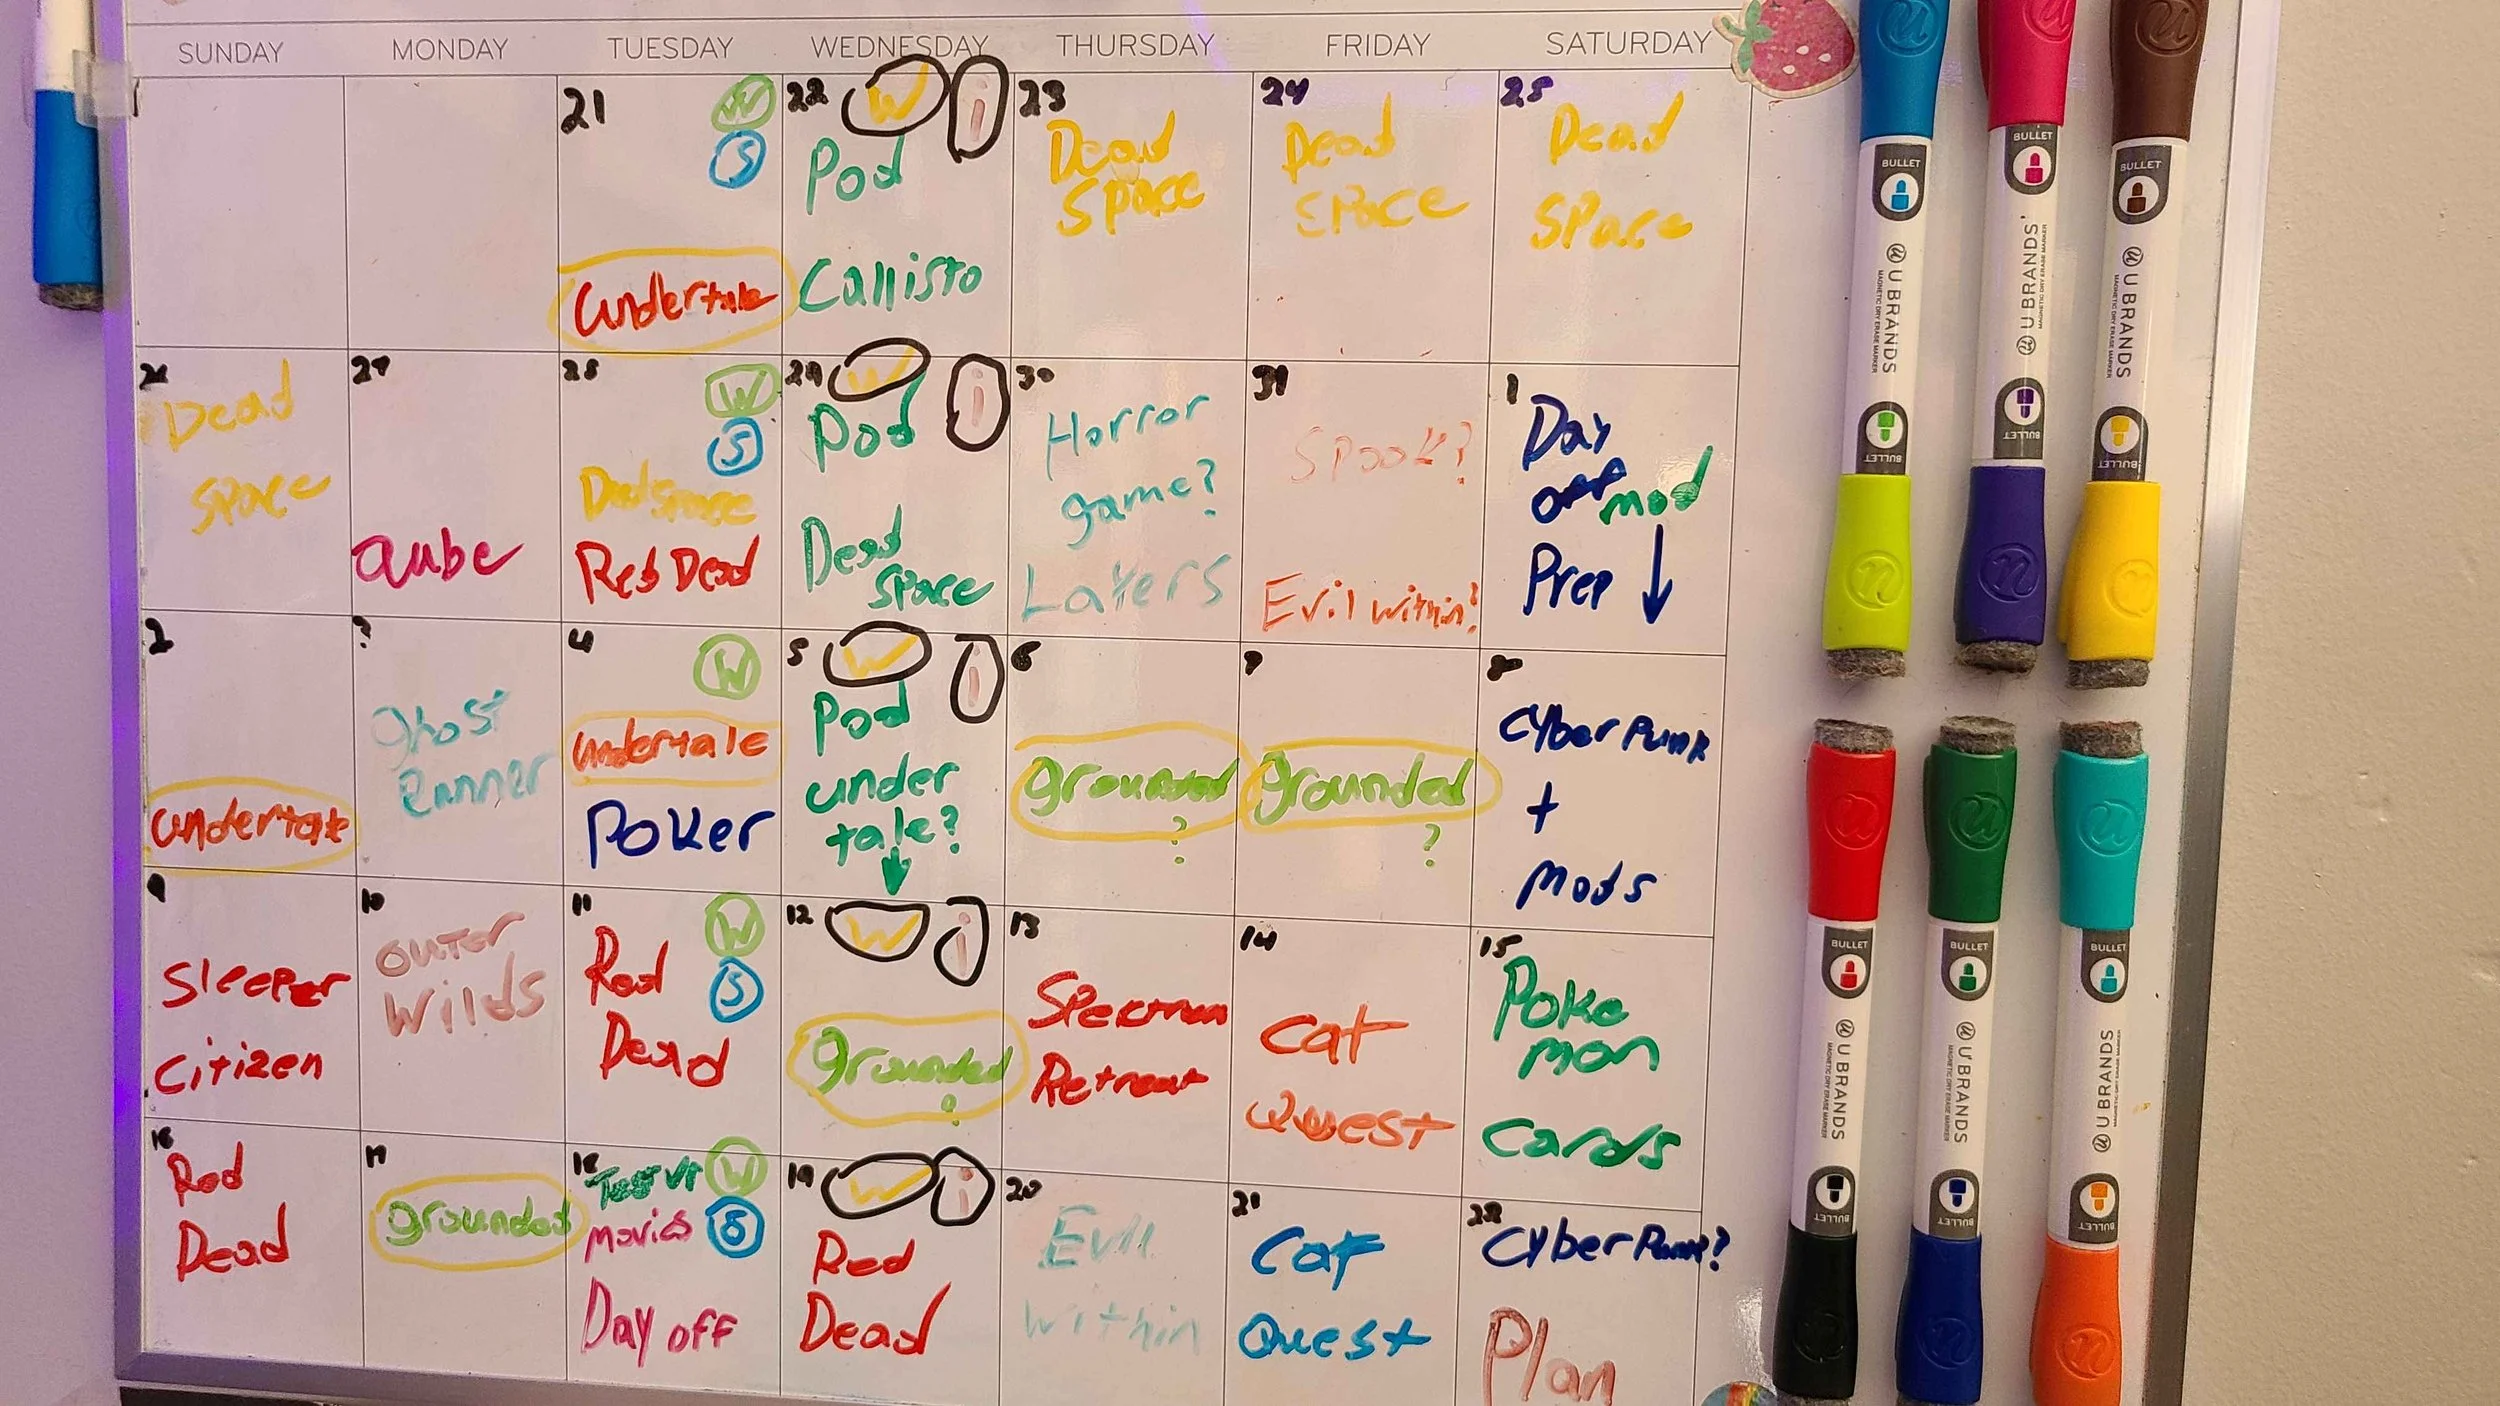 SUNDAY MONDAY TUESDAY WEDNESDAY THURSDAY FRIDAY SATURDAY
21 W
S
undertale
22 W i
Pod
Callisto
23
Dead
Space
24
Dead
Space
25
Dead
Space
26
Dead
Space
27
Qube
28 W
S
Dead Space
Red Dead
29 W i
Pod
Dead
Space
30
Horror
game?
Layers
31
Spook?
Evil Within?
1
Day
off mod
Prep
2
undertale
?
ghost
Runner
4 W
undertale
Poker
5 W i
Pod
under
tale?
6
grounded
?
7
grounded
?
8
Cyber Punk
+
Mods
9
Sleeper
Citizen
10
outer
Wilds
11 W
Red S
Dead
12 W i
grounded
?
13
Spectrum
Retreat
14
Cat
Quest
15
Poke
mon
Cards
16
Red
Dead
17
grounded
18 Test VT W
movies S
Day off
19 W i
Red
Dead
20
Evil
Within
21
Cat
Quest
22
Cyber Punk?
Plan
BULLET
U BRANDS
MAGNETIC DRY ERASE MARKER
BULLET
BULLET
U BRANDS
MAGNETIC DRY ERASE MARKER
BULLET
BULLET
U BRANDS
MAGNETIC DRY ERASE MARKER
BULLET
BULLET
U BRANDS
MAGNETIC DRY ERASE MARKER
BULLET
BULLET
U BRANDS
MAGNETIC DRY ERASE MARKER
BULLET
BULLET
U BRANDS
MAGNETIC DRY ERASE MARKER
BULLET